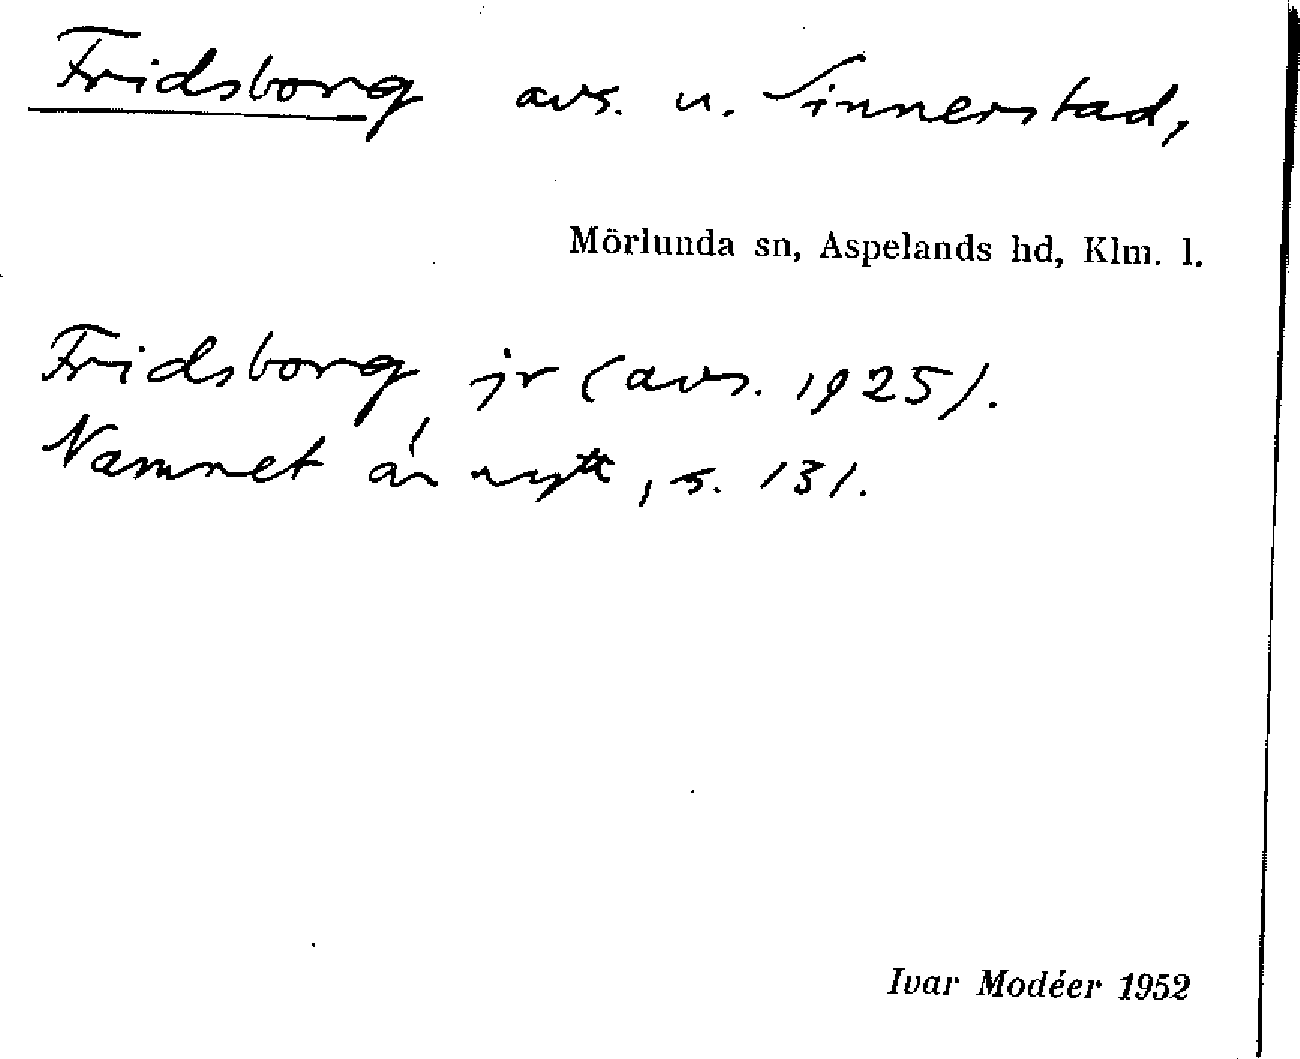 Fridsborg avs. u. Sinnerstad,
Mörlunda sn, Aspelands hd, Klm. l.
Fridsborg, jr (avs. 1925).
Namnet är nytt, s. 131.
Ivar Modéer 1952